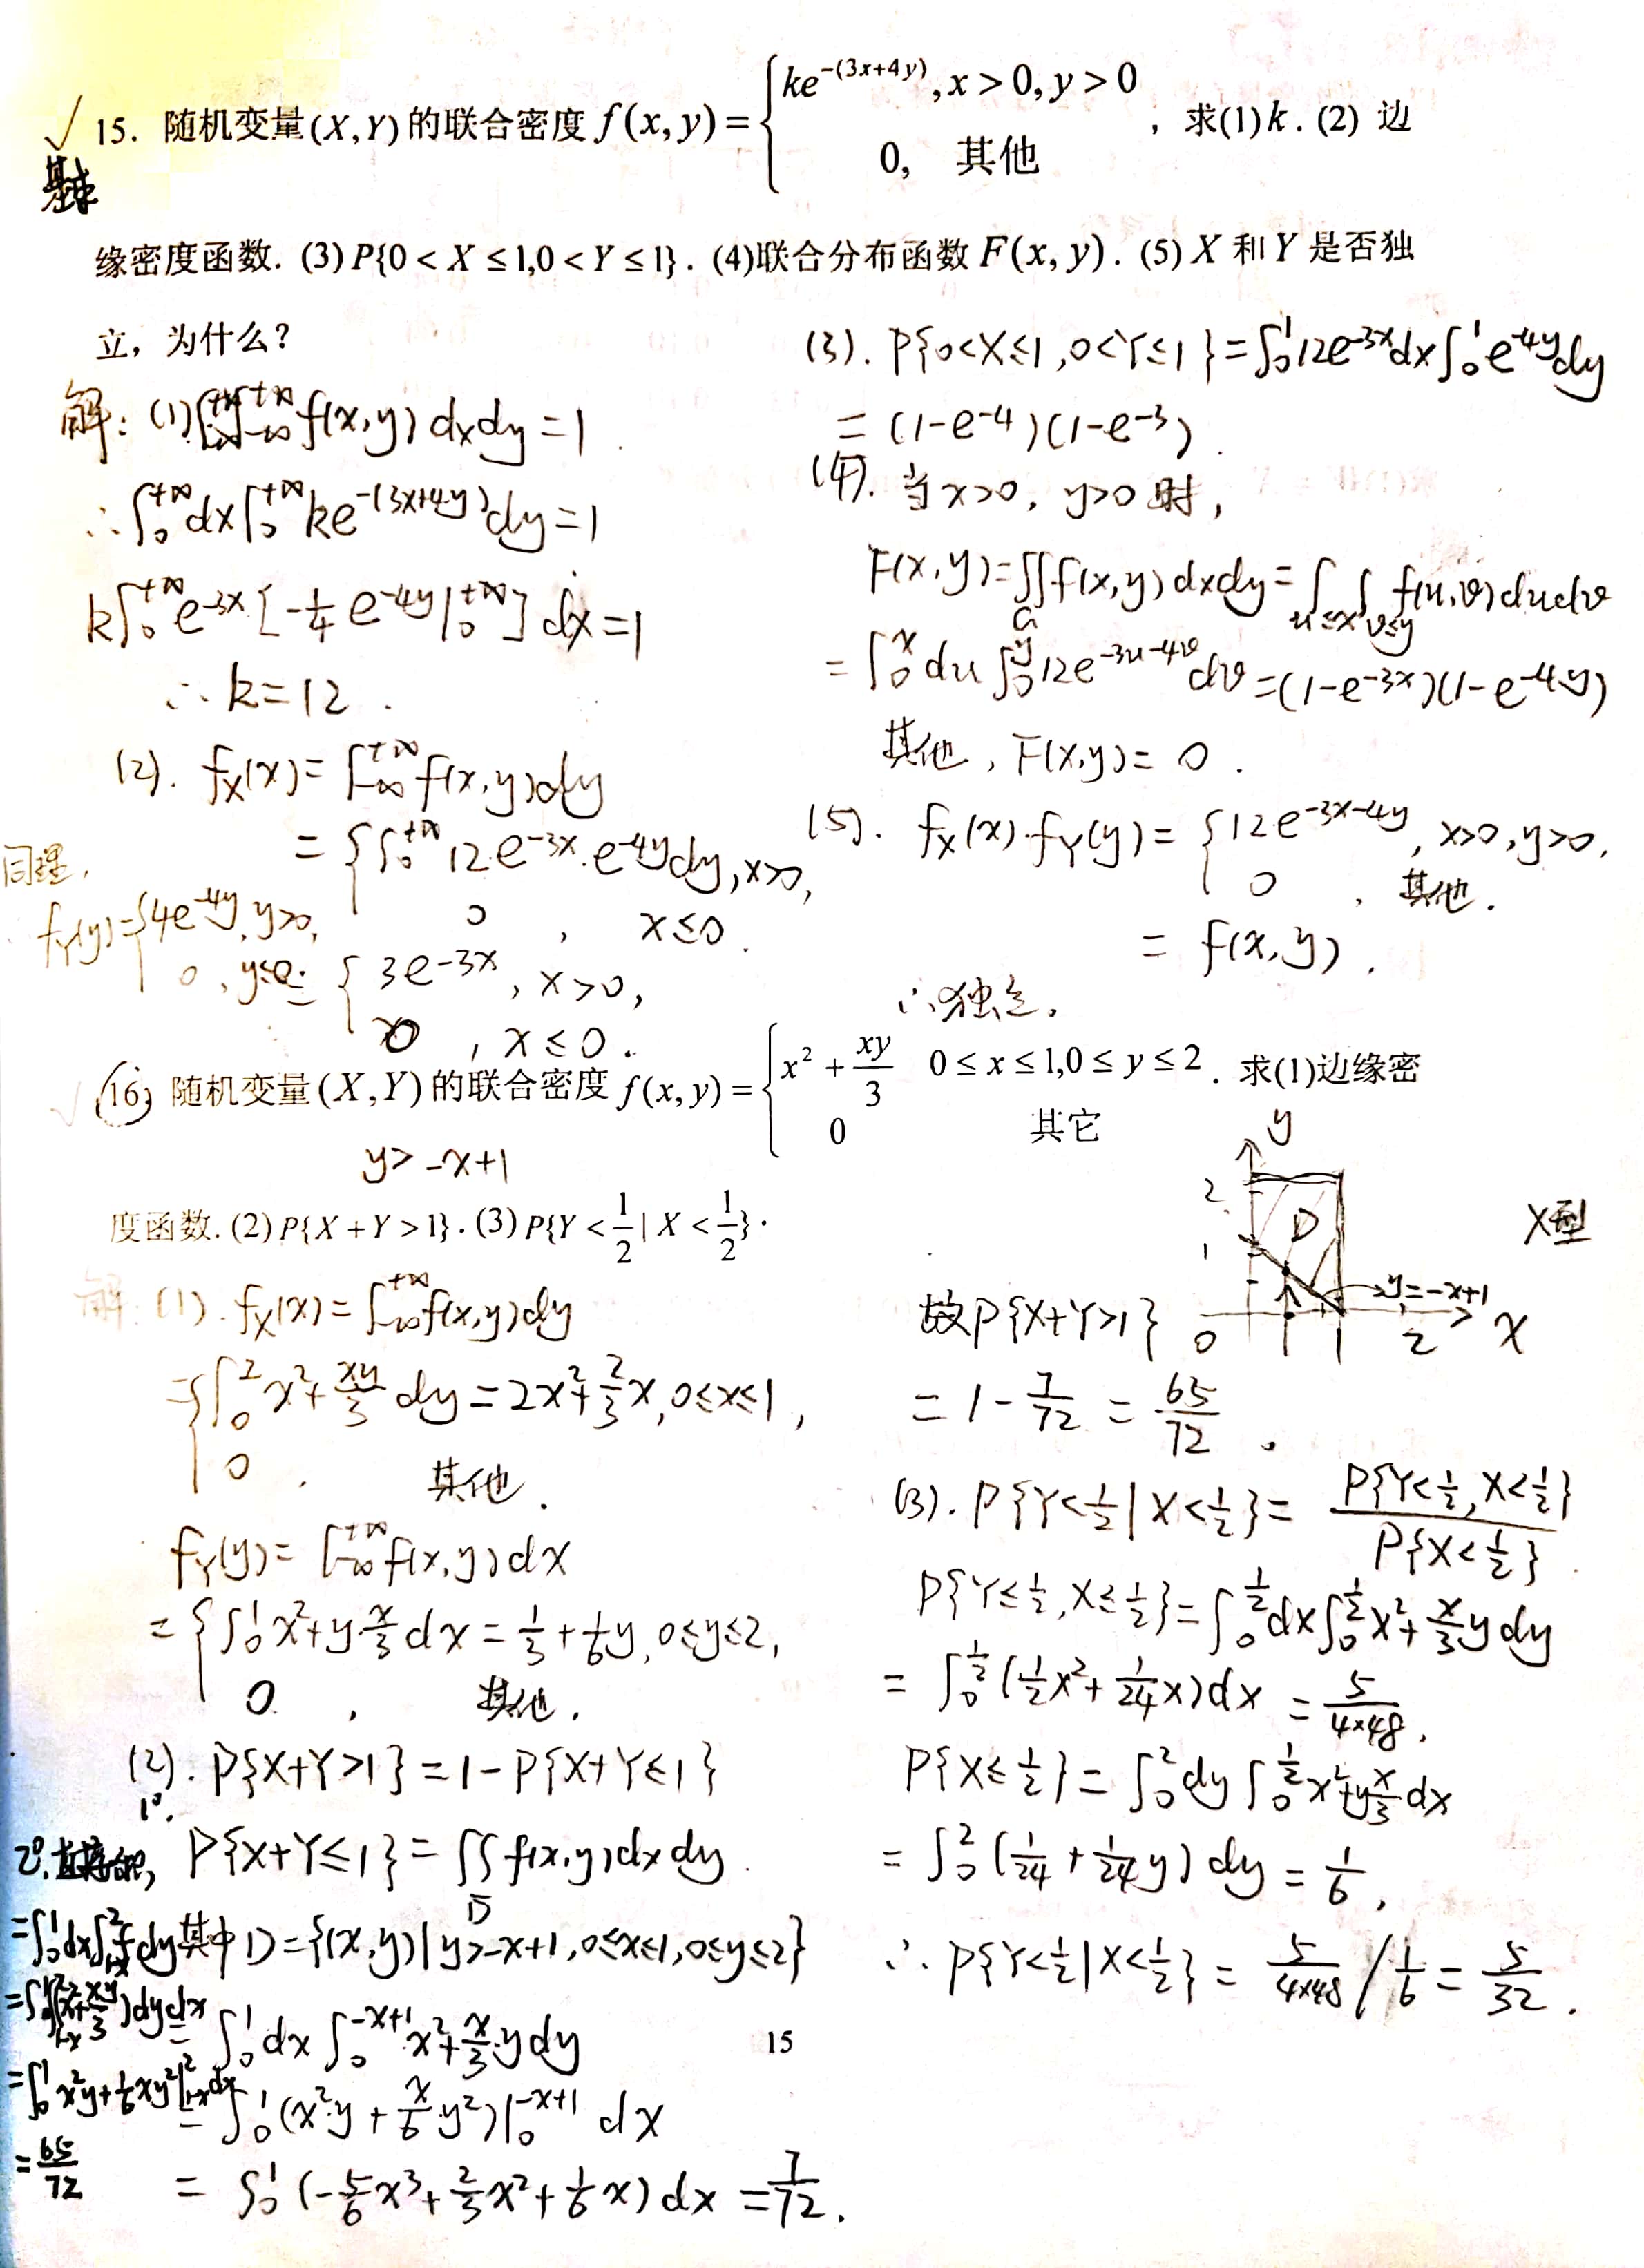 √ 15. 随机变量(X,Y)的联合密度 f(x,y)={ke^{-(3x+4y)}, x>0, y>0; 0, 其他 , 求(1)k. (2) 边
缘密度函数. (3) P{0<X≤1,0<Y≤1}. (4)联合分布函数 F(x,y). (5) X 和 Y 是否独
立, 为什么?
解: (1) ∫_{-∞}^{+∞}∫_{-∞}^{+∞} f(x,y) dxdy=1
∴ ∫_0^{+∞}dx∫_0^{+∞}ke^{-(3x+4y)}dy=1
k∫_0^{+∞}e^{-3x}[-1/4 e^{-4y}|_0^{+∞}] dx=1
∴ k=12 .
(2). f_X(x)=∫_{-∞}^{+∞}f(x,y)dy
={∫_0^{+∞} 12·e^{-3x}·e^{-4y}dy, x>0,
0 , x≤0.
={3e^{-3x}, x>0,
0 , x≤0.
同理,
f_Y(y)={4e^{-4y}, y>0,
0 , y≤0.
(3). P{0<X≤1,0<Y≤1}=∫_0^1 12e^{-3x}dx∫_0^1 e^{-4y}dy
=(1-e^{-4})(1-e^{-3}).
(4). 当x>0, y>0时,
F(x,y)=∬_G f(x,y)dxdy=∫_{u≤x}∫_{v≤y} f(u,v)dudv
=∫_0^x du∫_0^y 12e^{-3u-4v}dv=(1-e^{-3x})(1-e^{-4y})
其他, F(x,y)=0.
(5). f_X(x)·f_Y(y)={12e^{-3x-4y}, x>0,y>0,
0 , 其他.
=f(x,y).
∴独立.
√ 16. 随机变量(X,Y)的联合密度 f(x,y)={x²+xy/3 0≤x≤1,0≤y≤2; 0 其它 . 求(1)边缘密
y>-x+1
度函数. (2) P{X+Y>1}. (3) P{Y<1/2|X<1/2}.
解: (1). f_X(x)=∫_{-∞}^{+∞}f(x,y)dy
={∫_0^2 x²+xy/3 dy=2x²+2/3x, 0≤x≤1,
0 , 其他.
f_Y(y)=∫_{-∞}^{+∞}f(x,y)dx
={∫_0^1 x²+y·x/3 dx=1/3+1/6y, 0≤y≤2,
0 , 其他.
(2). P{X+Y>1}=1-P{X+Y≤1}
1°.
P{X+Y≤1}=∬_{D̄} f(x,y)dxdy.
其中D={(x,y)|y>-x+1,0≤x≤1,0≤y≤2}
=∫_0^1 dx∫_0^{-x+1} x²+x/3·y dy
=∫_0^1 (x²·y+x/6·y²)|_0^{-x+1} dx
=∫_0^1 (-5/6x³+2/3x²+1/6x)dx=7/72.
2°.
=∫_0^1dx∫_{1-x}^2 f dy
=∫_0^1∫_{1-x}^2(x²+xy/3)dydx
=∫_0^1 x²y+1/6xy²|_{1-x}^2dx
=65/72
y
2
D
X型
1
y=-x+1
0
1
2
x
故P{X+Y>1}
=1-7/72=65/72.
(3). P{Y<1/2|X<1/2}=P{Y<1/2,X<1/2}/P{X<1/2}.
P{Y≤1/2,X≤1/2}=∫_0^{1/2}dx∫_0^{1/2}x²+x/3y dy
=∫_0^{1/2}(1/2x²+1/24x)dx=5/(4×48),
P{X≤1/2}=∫_0^2dy∫_0^{1/2}x²+y·x/3dx
=∫_0^2(1/24+1/24y)dy=1/6,
∴P{Y<1/2|X<1/2}=5/(4×48)/1/6=5/32.
15